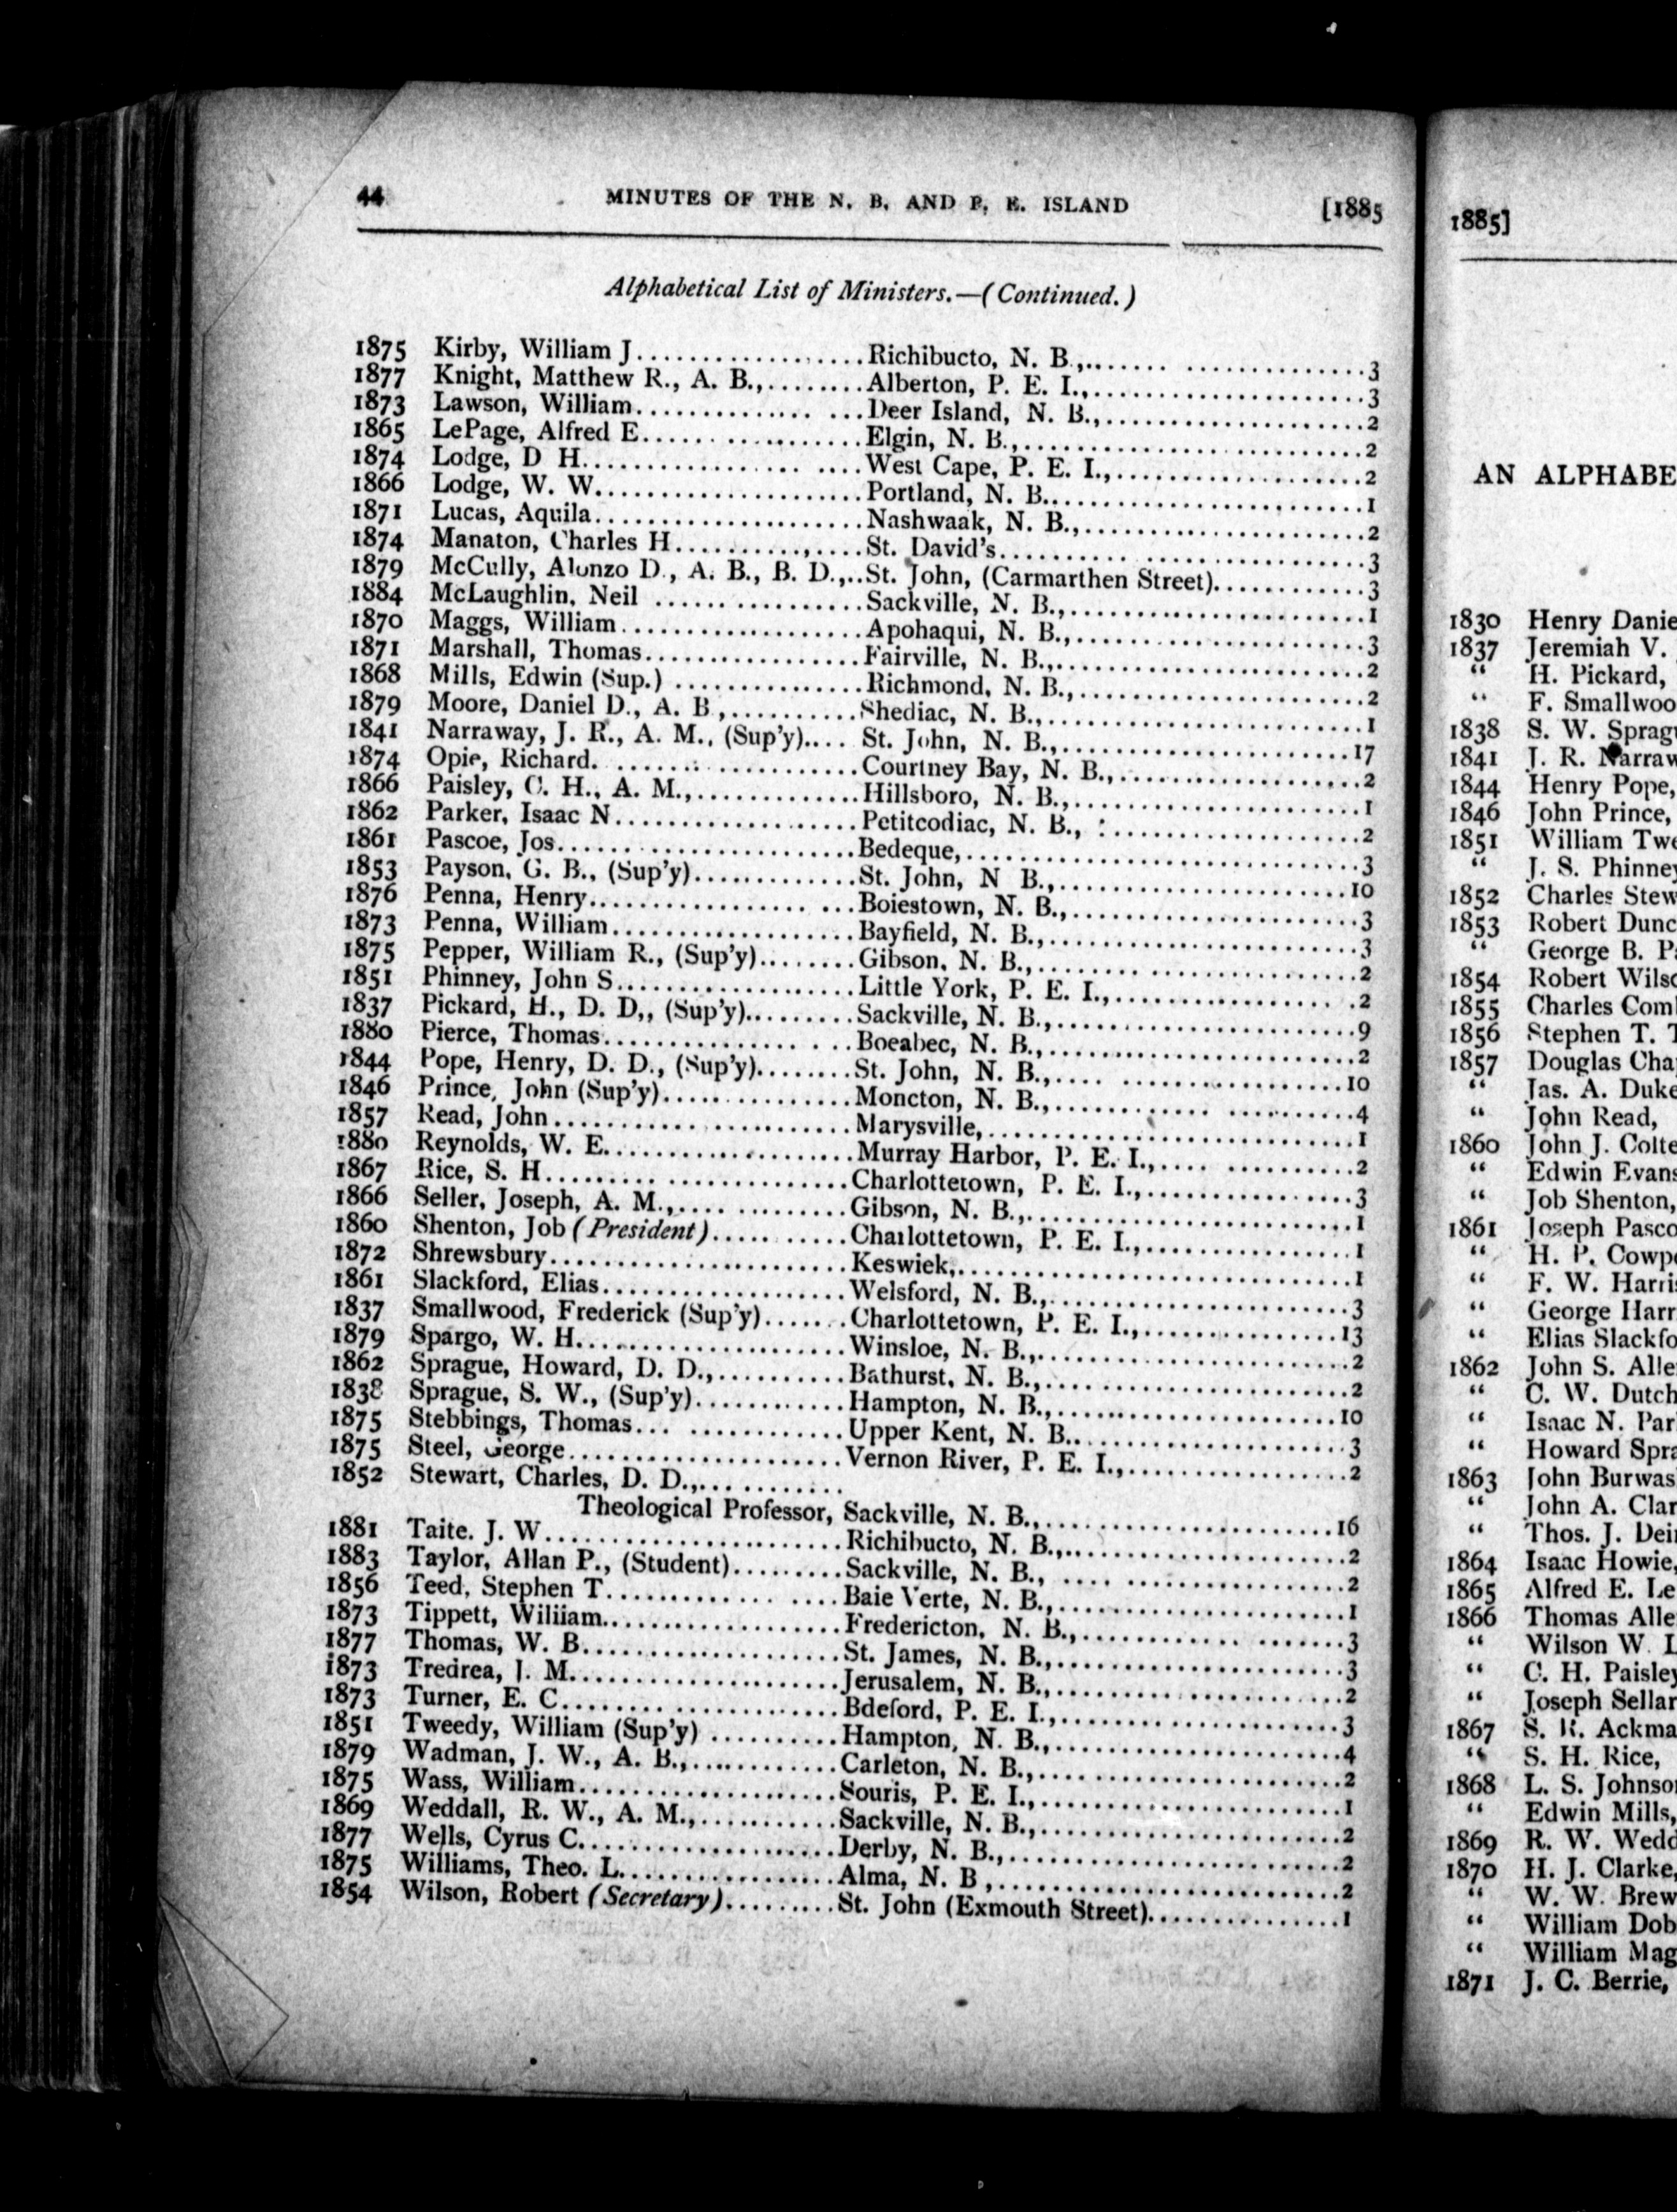 44 MINUTES OF THE N. B. AND P. E. ISLAND [1885
Alphabetical List of Ministers.—(Continued.)
1875 Kirby, William J. Richibucto, N. B., 3
1877 Knight, Matthew R., A. B., Alberton, P. E. I., 3
1873 Lawson, William Deer Island, N. B., 2
1865 LePage, Alfred E. Elgin, N. B., 2
1874 Lodge, D H. West Cape, P. E. I., 2
1866 Lodge, W. W. Portland, N. B. 1
1871 Lucas, Aquila Nashwaak, N. B., 2
1874 Manaton, Charles H. St. David's 3
1879 McCully, Alonzo D., A. B., B. D., St. John, (Carmarthen Street) 3
1884 McLaughlin, Neil Sackville, N. B., 1
1870 Maggs, William Apohaqui, N. B., 3
1871 Marshall, Thomas Fairville, N. B., 2
1868 Mills, Edwin (Sup.) Richmond, N. B., 2
1879 Moore, Daniel D., A. B., Shediac, N. B., 1
1841 Narraway, J. R., A. M., (Sup'y) St. John, N. B., 17
1874 Opie, Richard Courtney Bay, N. B., 2
1866 Paisley, C. H., A. M., Hillsboro, N. B., 1
1862 Parker, Isaac N. Petitcodiac, N. B., 2
1861 Pascoe, Jos. Bedeque, 3
1853 Payson, G. B., (Sup'y) St. John, N B., 10
1876 Penna, Henry Boiestown, N. B., 3
1873 Penna, William Bayfield, N. B., 3
1875 Pepper, William R., (Sup'y) Gibson, N. B., 2
1851 Phinney, John S. Little York, P. E. I., 2
1837 Pickard, H., D. D,, (Sup'y) Sackville, N. B., 9
1880 Pierce, Thomas Boeabec, N. B., 2
1844 Pope, Henry, D. D., (Sup'y) St. John, N. B., 10
1846 Prince, John (Sup'y) Moncton, N. B., 4
1857 Read, John Marysville, 1
1880 Reynolds, W. E. Murray Harbor, P. E. I., 2
1867 Rice, S. H. Charlottetown, P. E. I., 3
1866 Seller, Joseph, A. M., Gibson, N. B., 1
1860 Shenton, Job (President) Charlottetown, P. E. I., 1
1872 Shrewsbury Keswiek, 1
1861 Slackford, Elias Welsford, N. B., 3
1837 Smallwood, Frederick (Sup'y) Charlottetown, P. E. I., 13
1879 Spargo, W. H. Winsloe, N. B., 2
1862 Sprague, Howard, D. D., Bathurst, N. B., 2
1838 Sprague, S. W., (Sup'y) Hampton, N. B., 10
1875 Stebbings, Thomas Upper Kent, N. B. 3
1875 Steel, George Vernon River, P. E. I., 2
1852 Stewart, Charles, D. D.,
Theological Professor, Sackville, N. B., 16
1881 Taite. J. W. Richibucto, N. B., 2
1883 Taylor, Allan P., (Student) Sackville, N. B., 2
1856 Teed, Stephen T. Baie Verte, N. B., 1
1873 Tippett, William Fredericton, N. B., 3
1877 Thomas, W. B. St. James, N. B., 3
1873 Tredrea, J. M. Jerusalem, N. B., 2
1873 Turner, E. C. Bdeford, P. E. I., 3
1851 Tweedy, William (Sup'y) Hampton, N. B., 4
1879 Wadman, J. W., A. B., Carleton, N. B., 2
1875 Wass, William Souris, P. E. I., 1
1869 Weddall, R. W., A. M., Sackville, N. B., 2
1877 Wells, Cyrus C. Derby, N. B., 2
1875 Williams, Theo. L. Alma, N. B , 2
1854 Wilson, Robert (Secretary) St. John (Exmouth Street) 1
1885]
AN ALPHABE
1830 Henry Danie
1837 Jeremiah V.
“ H. Pickard,
“ F. Smallwoo
1838 S. W. Spragu
1841 J. R. Narraw
1844 Henry Pope,
1846 John Prince,
1851 William Twe
“ J. S. Phinney
1852 Charles Stew
1853 Robert Dunc
“ George B. Pa
1854 Robert Wilso
1855 Charles Coml
1856 Stephen T. T
1857 Douglas Cha
“ Jas. A. Duke
“ John Read,
1860 John J. Colte
“ Edwin Evans
“ Job Shenton,
1861 Joseph Pasco
“ H. P. Cowpe
“ F. W. Harris
“ George Harr
“ Elias Slackfo
1862 John S. Alle
“ C. W. Dutch
“ Isaac N. Par
“ Howard Spra
1863 John Burwas
“ John A. Clar
“ Thos. J. Dei
1864 Isaac Howie,
1865 Alfred E. Le
1866 Thomas Alle
“ Wilson W. L
“ C. H. Paisley
“ Joseph Sellar
1867 S. R. Ackma
“ S. H. Rice,
1868 L. S. Johnso
“ Edwin Mills,
1869 R. W. Wedd
1870 H. J. Clarke,
“ W. W. Brew
“ William Dob
“ William Mag
1871 J. C. Berrie,